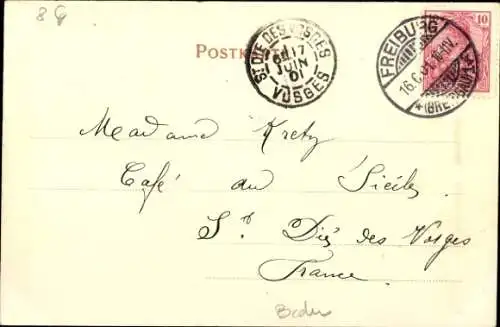 8
POSTK
ST DIÉ DES VOSGES
17
JUIN
01
VOSGES
FREIBURG
16.6.01
(BREISGAU)
10
Madame Krety
Café du Siècle
St. Dié des Vosges
France